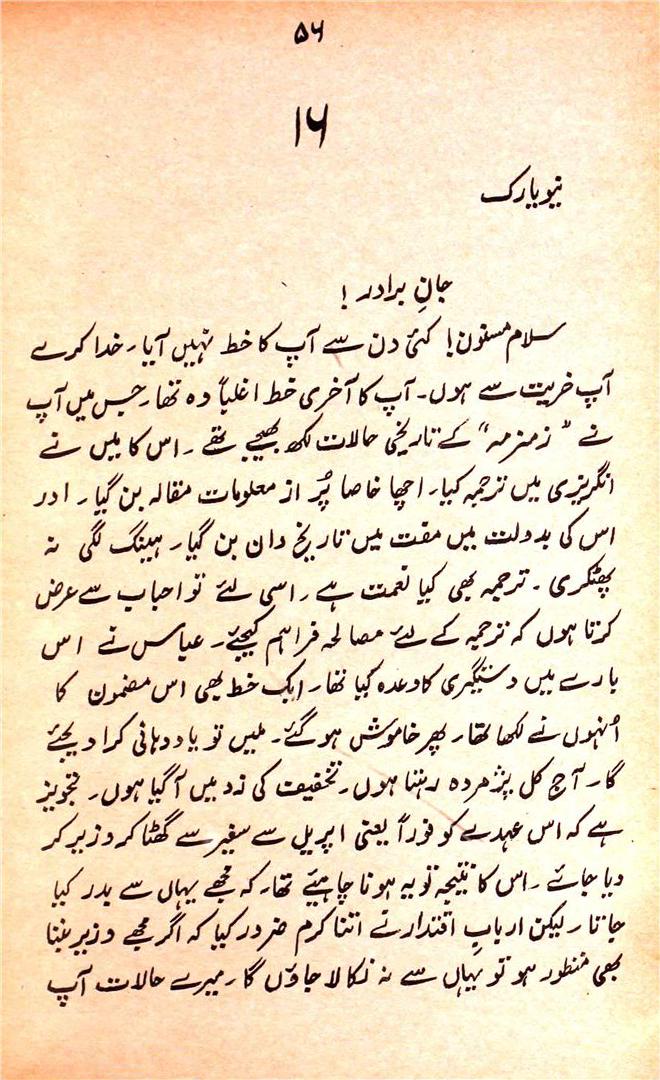 ۵۶
۱۶
نیویارک
جانِ برادر !
سلام مسنون! کئی دن سے آپ کا خط نہیں آیا۔ خدا کرے
آپ خریت سے ہوں۔ آپ کا آخری خط اغلباً وہ تھا۔ جس میں آپ
نے ”زمزمہ“ کے تاریخی حالات لکھ بھیجے تھے۔ اس کا میں نے
انگریزی میں ترجمہ کیا۔ اچھا خاصا پُر از معلومات مقالہ بن گیا۔ اور
اس کی بدولت میں مفت میں تاریخ دان بن گیا۔ ہینگ لگی نہ
پھٹکری۔ ترجمہ بھی کیا نعمت ہے۔ اسی لئے تو احباب سے عرض
کرتا ہوں کہ ترجمہ کے لئے مصالحہ فراہم کیجئے۔ عباس نے اس
بارے میں دستگیری کا وعدہ کیا تھا۔ ایک خط بھی اس مضمون کا
اُنہوں نے لکھا تھا۔ پھر خاموش ہو گئے۔ ملیں تو یاد دہانی کرا دیجئے
گا۔ آج کل پژمردہ رہتا ہوں۔ تخفیف کی زد میں آ گیا ہوں۔ تجویز
ہے کہ اس عہدے کو فوراً یعنی اپریل سے سفیر سے گھٹا کر وزیر کر
دیا جائے۔ اس کا نتیجہ تو یہ ہونا چاہیئے تھا۔ کہ مجھے یہاں سے بدر کیا
جاتا۔ لیکن اربابِ اقتدار نے اتنا کرم ضرور کیا کہ اگر مجھے وزیر بننا
بھی منظور ہو تو یہاں سے نہ نکالا جاؤں گا۔ میرے حالات آپ